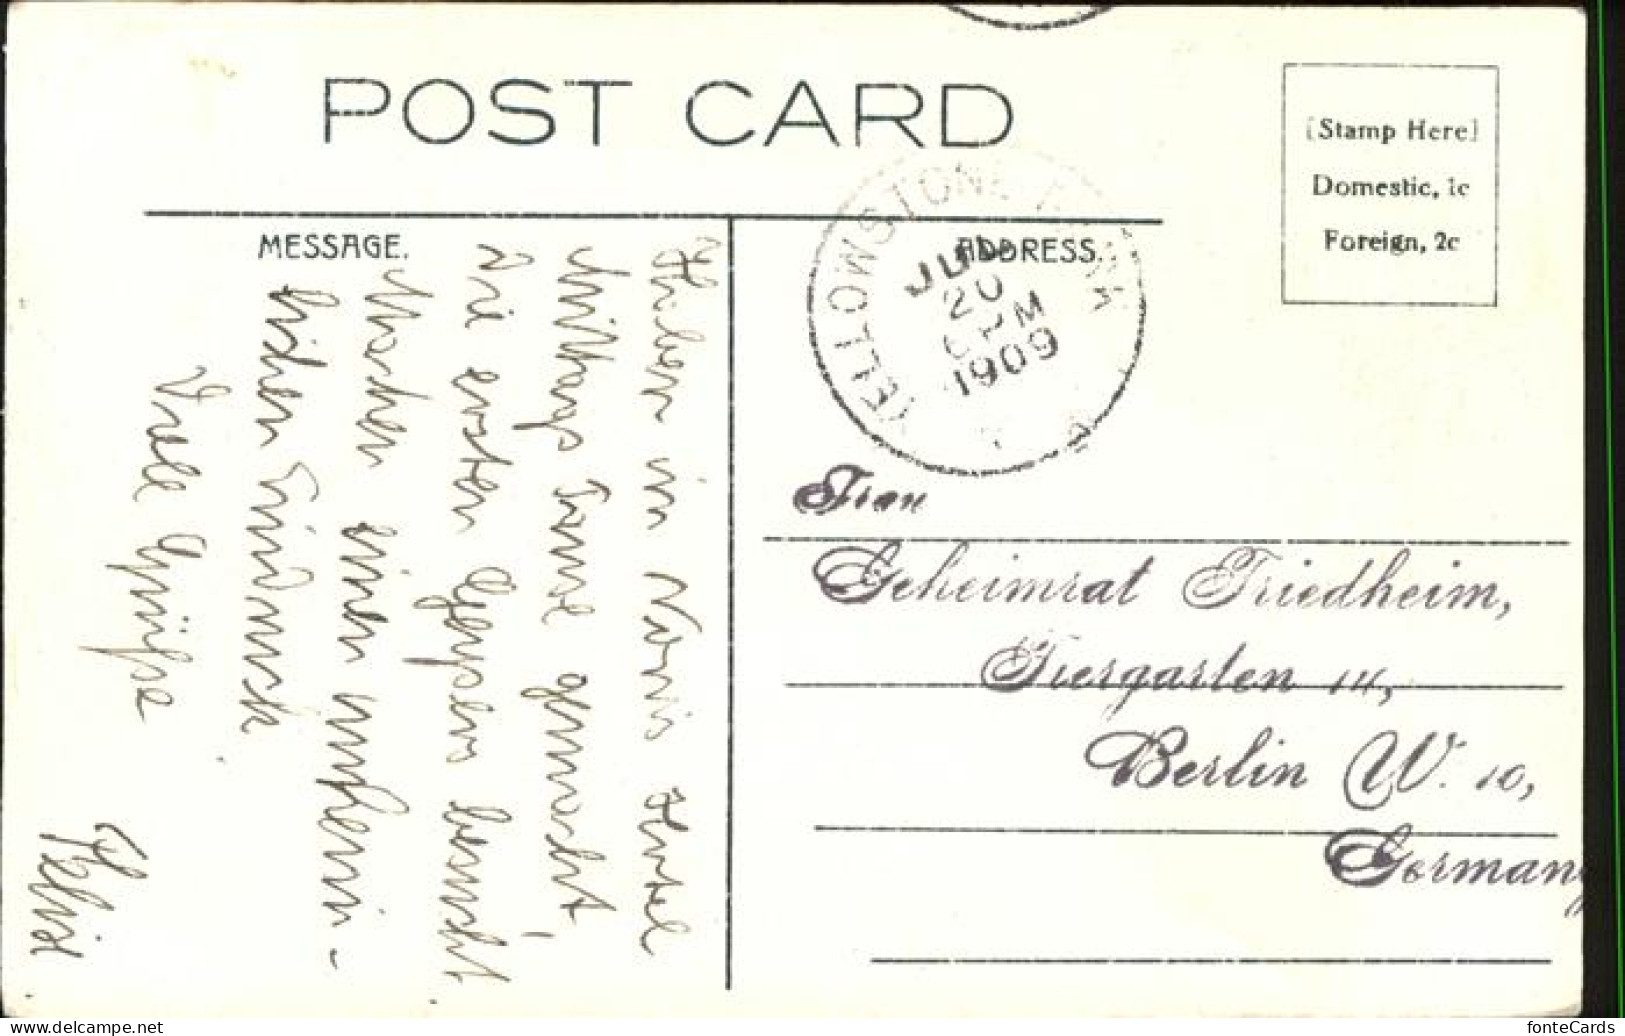 POST CARD
[Stamp Here]
Domestic, 1c
Foreign, 2c
MESSAGE.
ADDRESS.
YELLOWSTONE PARK
JUL
20
M
1909
Haben in Norris Hotel
Mittags Pause gemacht,
die ersten Geysers besucht
Machen einen unheim-
lichen Eindruck
Viele Grüsse
Frau
Geheimrat Friedheim,
Tiergarten 14,
Berlin W. 10,
Germany
www.delcampe.net
fonteCards